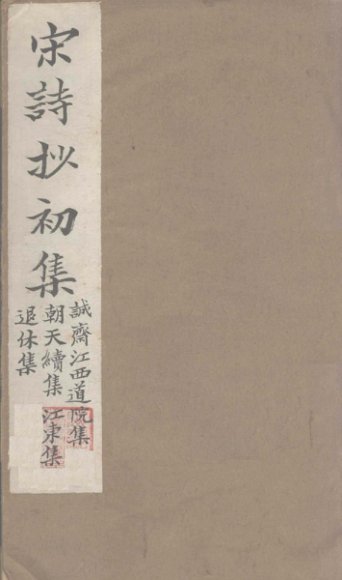 宋詩抄初集
誠齋江西道院集
朝天續集 江東集
退休集